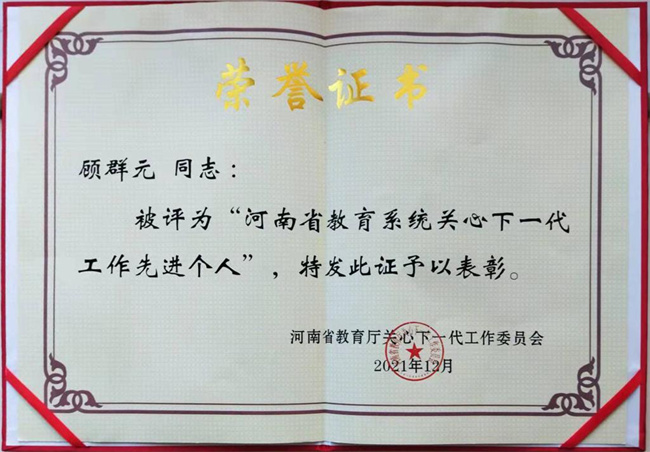 荣誉证书
顾群元 同志：
被评为“河南省教育系统关心下一代
工作先进个人”，特发此证予以表彰。
河南省教育厅关心下一代工作委员会
2021年12月